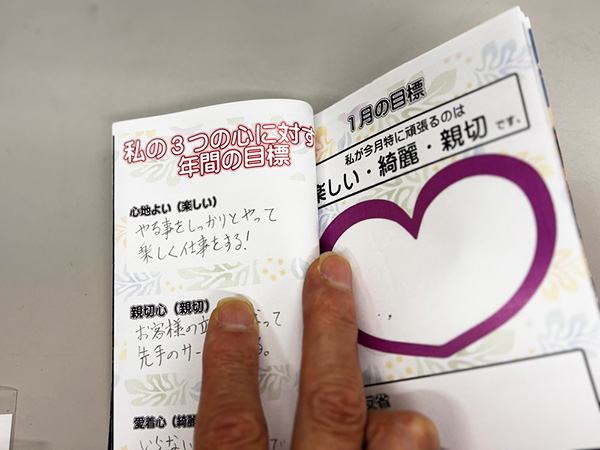 私の3つの心に対す
年間の目標
心地よい（楽しい）
やる事をしっかりとやって
楽しく仕事をする!
親切心（親切）
お客様の立 って
先手のサー る。
愛着心（綺麗
いらない
1月の目標
私が今月特に頑張るのは
楽しい・綺麗・親切 です。
反省